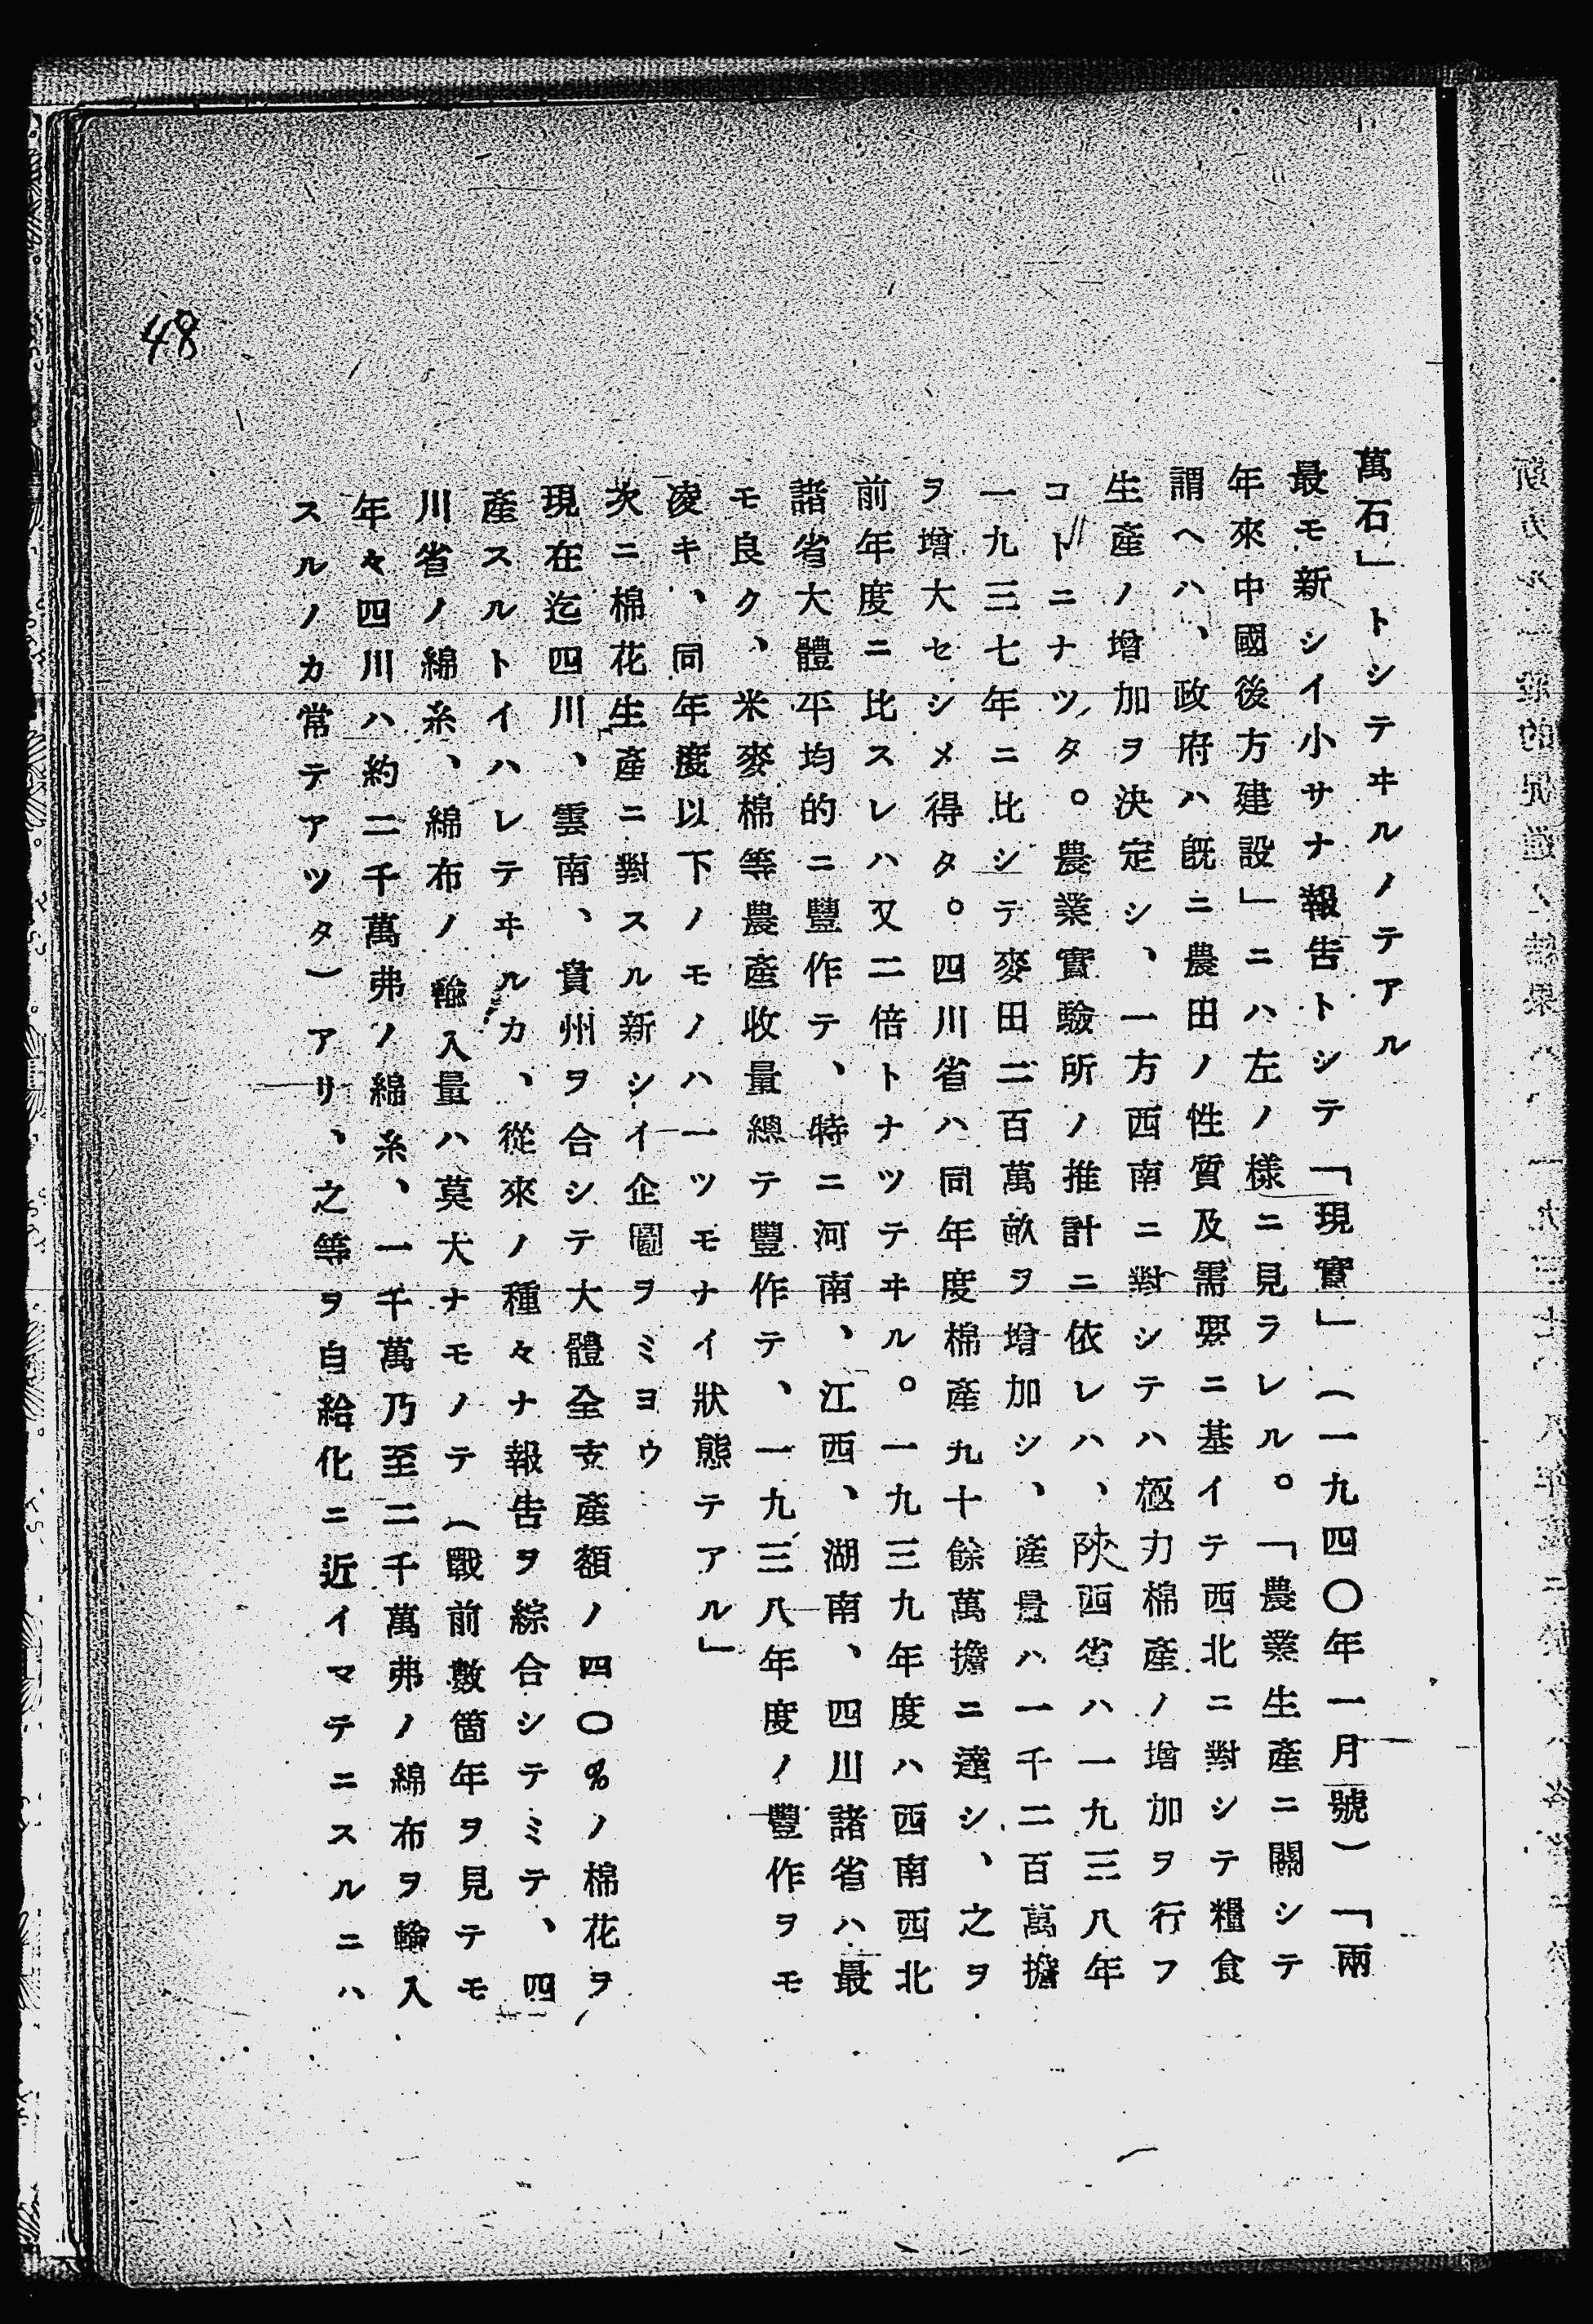 萬石」トシテヰルノテアル
最モ新シイ小サナ報告トシテ「現實」（一九四〇年一月號）「兩
年來中國後方建設」ニハ左ノ樣ニ見ラレル。「農業生產ニ關シテ
謂ヘハ、政府ハ既ニ農田ノ性質及需要ニ基イテ西北ニ對シテ糧食
生產ノ增加ヲ決定シ、一方西南ニ對シテハ極力棉產ノ增加ヲ行フ
コトニナツタ。農業實驗所ノ推計ニ依レハ、陝西省ハ一九三八年
一九三七年ニ比シテ麥田二百萬畝ヲ增加シ、產量ハ一千二百萬擔
ヲ增大セシメ得タ。四川省ハ同年度棉產九十餘萬擔ニ達シ、之ヲ
前年度ニ比スレハ又二倍トナツテヰル。一九三九年度ハ西南西北
諸省大體平均的ニ豐作テ、特ニ河南、江西、湖南、四川諸省ハ最
モ良ク、米麥棉等農產收量總テ豐作テ、一九三八年度ノ豐作ヲモ
凌キ、同年度以下ノモノハ一ツモナイ狀態テアル」
次ニ棉花生產ニ對スル新シイ企圖ヲミヨウ
現在迄四川、雲南、貴州ヲ合シテ大體全支產額ノ四〇%ノ棉花ヲ
產スルトイハレテヰルカ、從來ノ種々ナ報告ヲ綜合シテミテ、四
川省ノ綿糸、綿布ノ輸入量ハ莫大ナモノテ（戰前數箇年ヲ見テモ
年々四川ハ約二千萬弗ノ綿糸、一千萬乃至二千萬弗ノ綿布ヲ輸入
スルノカ常テアツタ）アリ、之等ヲ自給化ニ近イマテニスルニハ
48